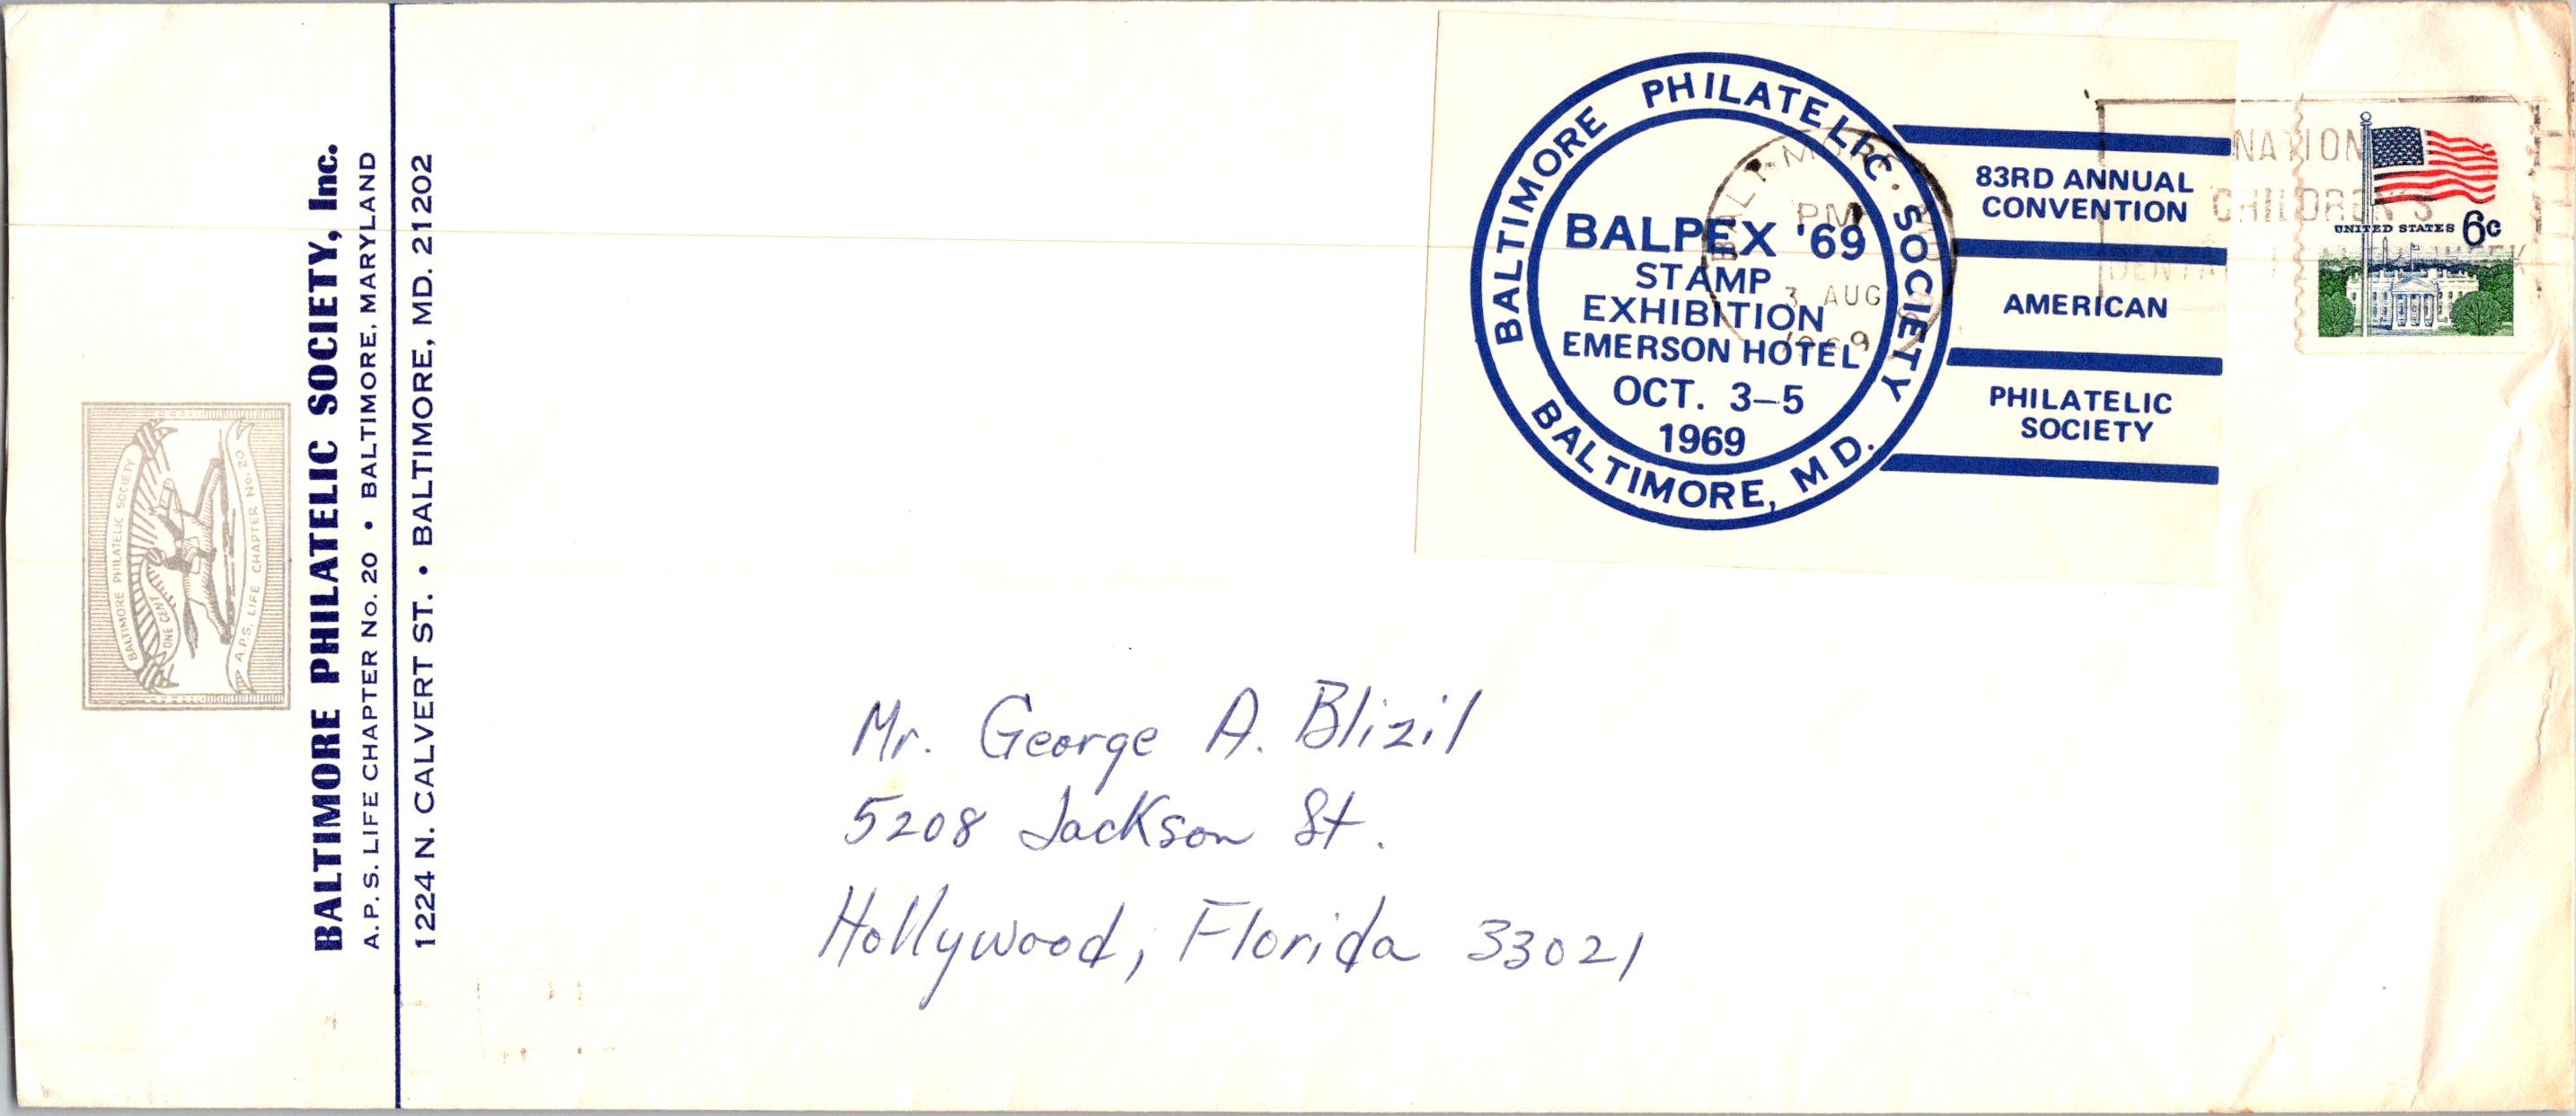 BALTIMORE PHILATELIC SOCIETY, Inc.
A.P.S. LIFE CHAPTER No. 20 • BALTIMORE, MARYLAND
1224 N. CALVERT ST. • BALTIMORE, MD. 21202
BALTIMORE PHILATELIC SOCIETY
ONE CENT
A.P.S. LIFE CHAPTER No. 20
BALTIMORE PHILATELIC SOCIETY
BALTIMORE, MD.
BALPEX '69
STAMP
EXHIBITION
EMERSON HOTEL
OCT. 3–5
1969
83RD ANNUAL
CONVENTION
AMERICAN
PHILATELIC
SOCIETY
PM
3 AUG
1969
NATION
CHILDREN'S
UNITED STATES 6c
Mr. George A. Blizil
5208 Jackson St.
Hollywood, Florida 33021